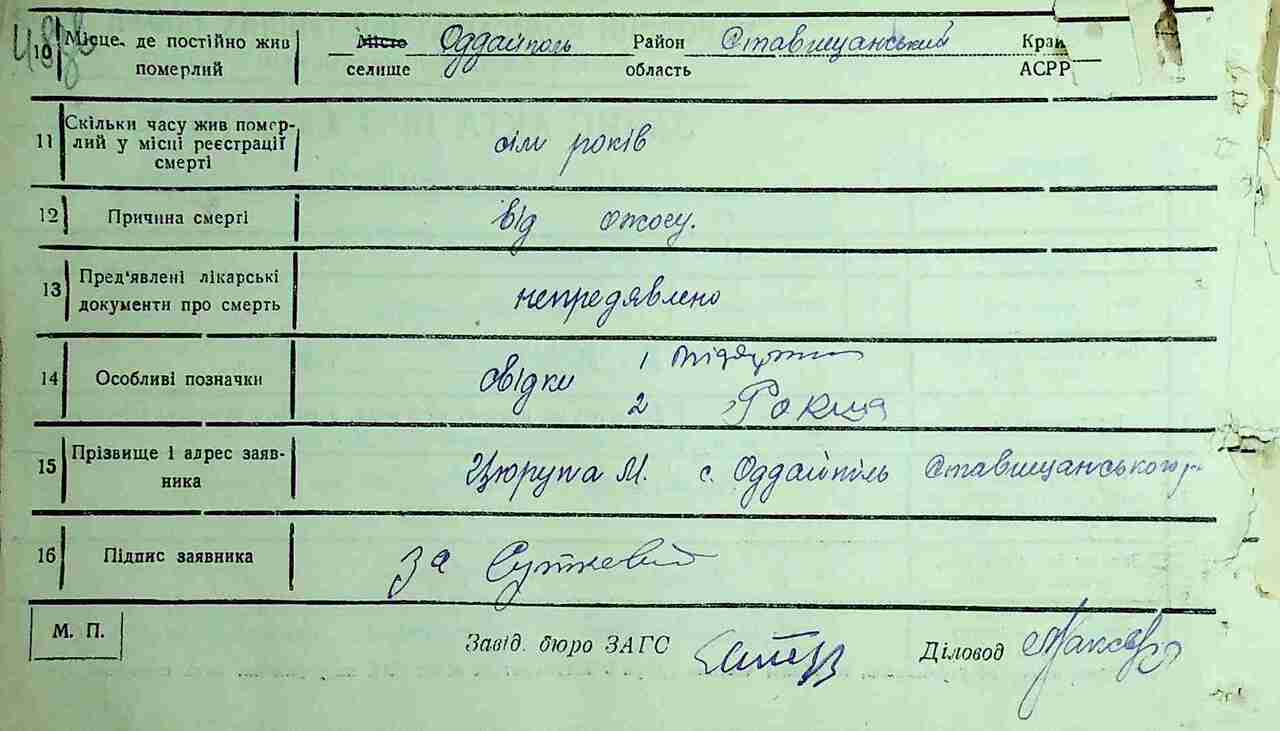 10 Місце, де постійно жив Місто Оддайполь Район Ставищанський Край
померлий селище область АСРР
11 Скільки часу жив помер-
лий у місці реєстрації
смерті
сім років
12 Причина смерті від опосу.
13 Пред'явлені лікарські
документи про смерть
непредявлено
14 Особливі позначки свідки 1
2
15 Прізвище і адрес заяв-
ника
Цюрупа М. с. Оддайпіль Ставищанського р-
16 Підпис заявника за
М. П. Завід. бюро ЗАГС Діловод